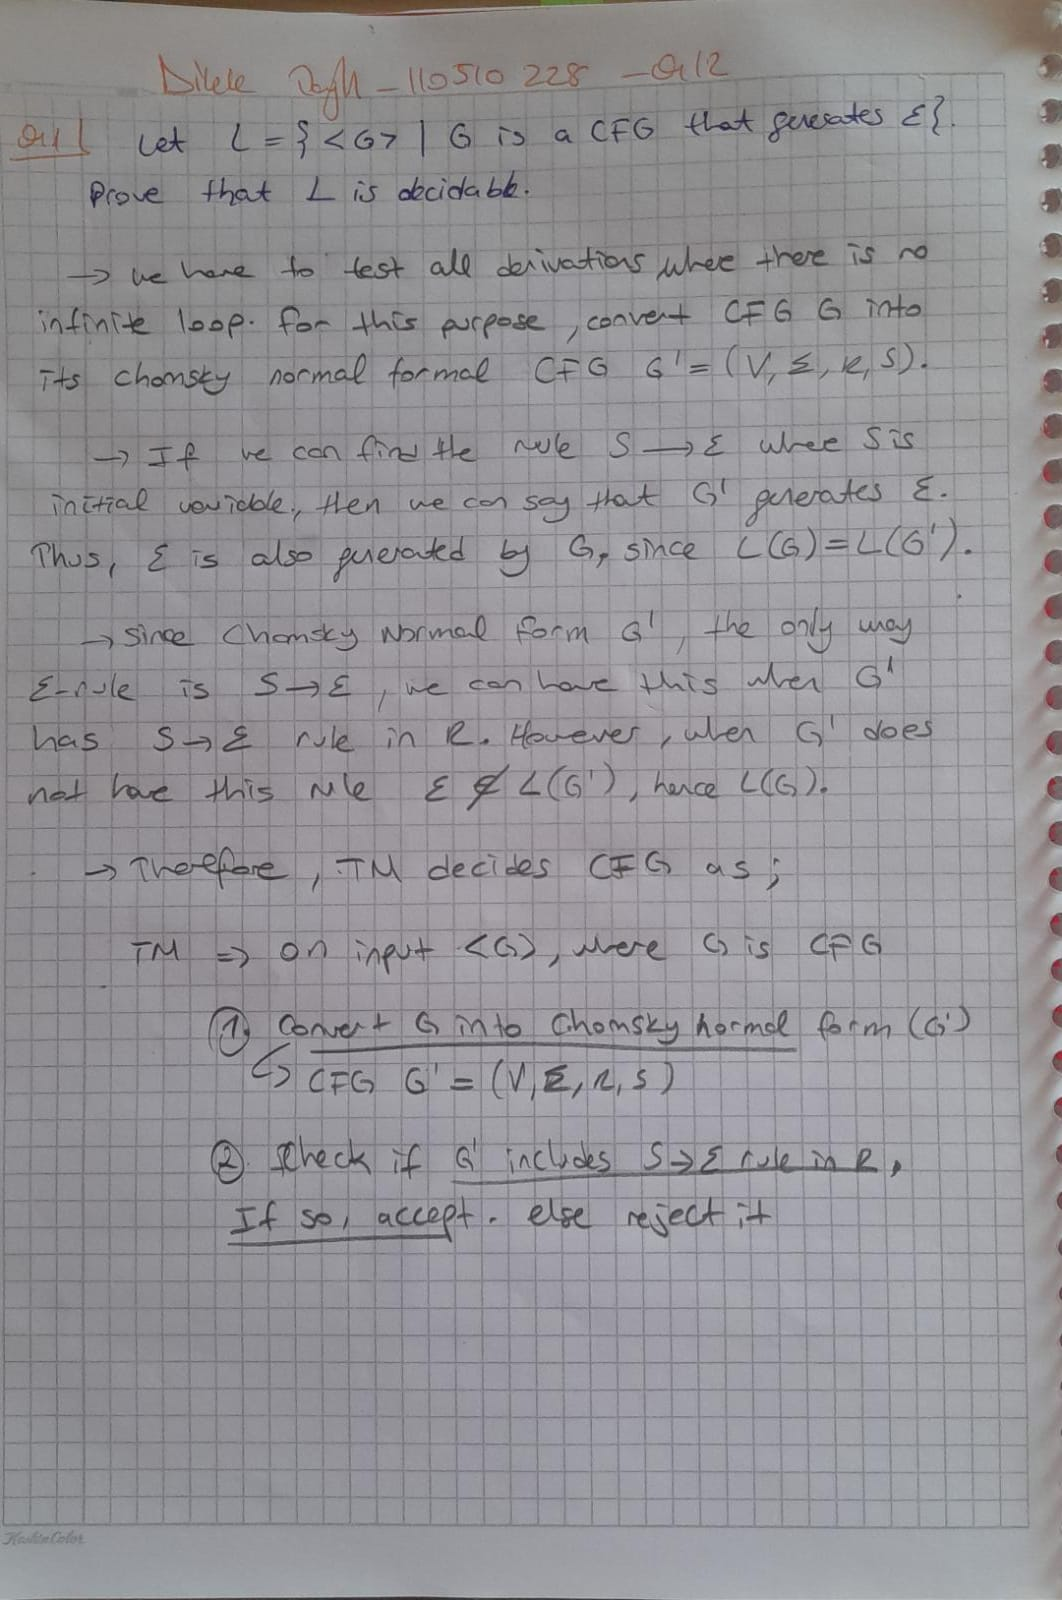 110510228 - Q1/2
Q1) Let L = { <G> | G is a CFG that generates ε}.
Prove that L is decidable.
→ we have to test all derivations where there is no
infinite loop. for this purpose, convert CFG G into
its chomsky normal formal CFG G' = (V, Σ, R, S).
→ If we can find the rule S → ε where S is
initial variable, then we can say that G' generates ε.
Thus, ε is also generated by G, since L(G) = L(G').
→ Since Chomsky Normal Form G', the only way
ε-rule is S → ε, we can have this when G'
has S → ε rule in R. However, when G' does
not have this rule ε ∉ L(G'), hence L(G).
→ Therefore, TM decides CFG as;
TM ⇒ on input <G>, where G is CFG
① Convert G into Chomsky normal form (G')
↳ CFG G' = (V, Σ, R, S)
② Check if G' includes S → ε rule in R,
If so, accept. else reject it
KeskinColor